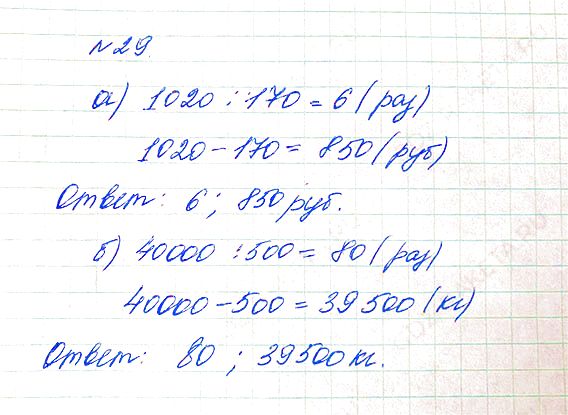 №29.
а) 1020 : 170 = 6 (раз)
1020 - 170 = 850 (руб)
Ответ: 6 ; 850 руб.
б) 40000 : 500 = 80 (раз)
40000 - 500 = 39500 (кг)
Ответ: 80 ; 39500 кг.